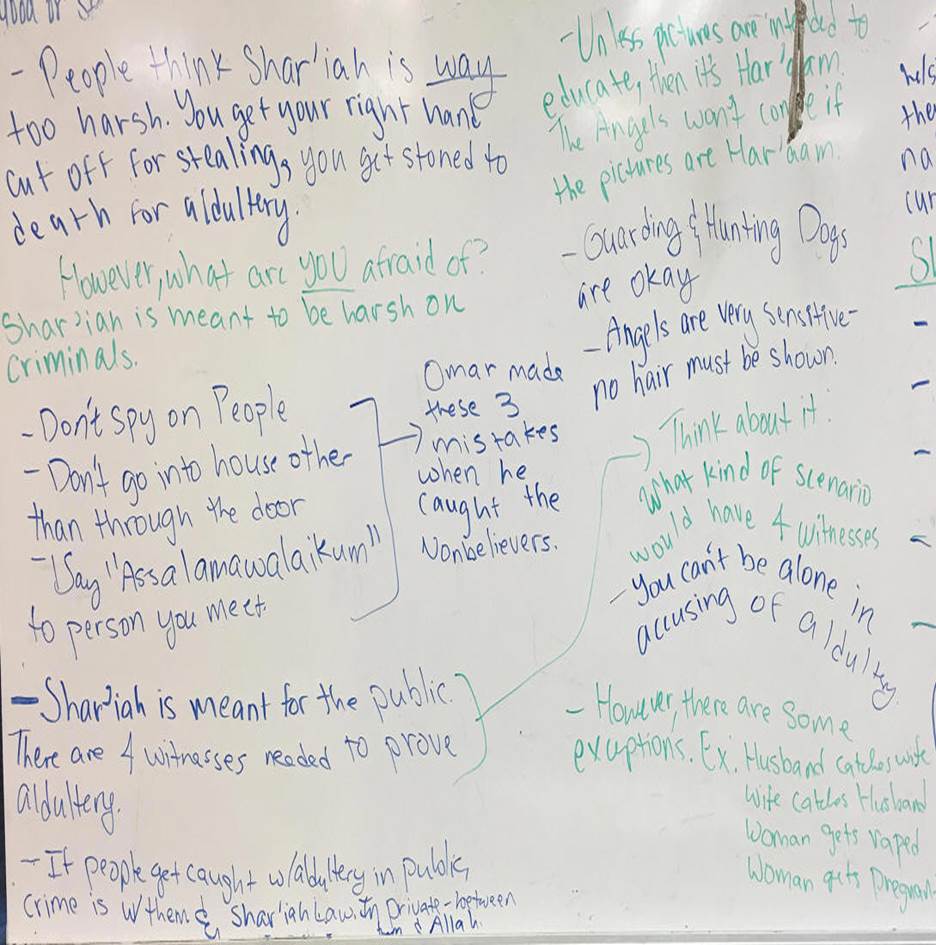 - People think Shar'iah is way
too harsh. You get your right hand
cut off for stealing, you get stoned to
death for aldultery.
However, what are YOU afraid of?
Shar'iah is meant to be harsh on
criminals.
- Don't spy on People
- Don't go into house other
than through the door
- Say "Assalamawalaikum"
to person you meet
Omar made
these 3
mistakes
when he
caught the
Nonbelievers.
- Shar'iah is meant for the public.
There are 4 witnesses needed to prove
aldultery.
- If people get caught w/aldultery in public,
crime is w/them & Shar'iah Law. In private - between
& Allah.
- Unless pictures are intended to
educate, then it's Har'aam.
The Angels won't come if
the pictures are Har'aam.
- Guarding & Hunting Dogs
are okay
- Angels are very sensitive-
no hair must be shown.
Think about it:
What kind of scenario
would have 4 witnesses
- You can't be alone in
accusing of aldultery.
- However, there are some
exceptions. Ex: Husband catches wife
Wife catches Husband
Woman gets raped
Woman gets Pregnan
he/s
the
na
cur